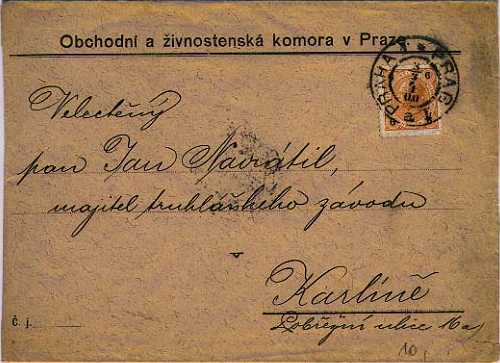 Obchodní a živnostenská komora v Praze.
PRAHA 1 * PRAG 1
3
3
00
6
Velectěný
pan Jan Navrátil,
majitel truhlářského závodu
Karlíně
Pobřežní ulice 16a)
č. j.
10